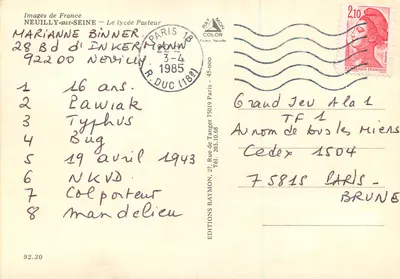 Images de France
NEUILLY-sur-SEINE - Le lycée Pasteur
MARIANNE BINNER
28 Bd d'INKERMANN
92200 Neuilly
1 16 ans.
2 Pawiak
3 Typhus
4 Bug
5 19 avril 1943
6 NKVD
7 Colporteur
8 mandelieu
92.30
RAY MON
COLOR
EDITIONS RAYMON, 27, Rue de Tanger 75019 Paris - 45-000
203.10.68
PARIS 18
3-4
1985
R. DUC (18e)
2,10
Grand Jeu A la 1
TF 1
Au nom de tous les miens
Cedex 1504
75815 PARIS-
BRUNE